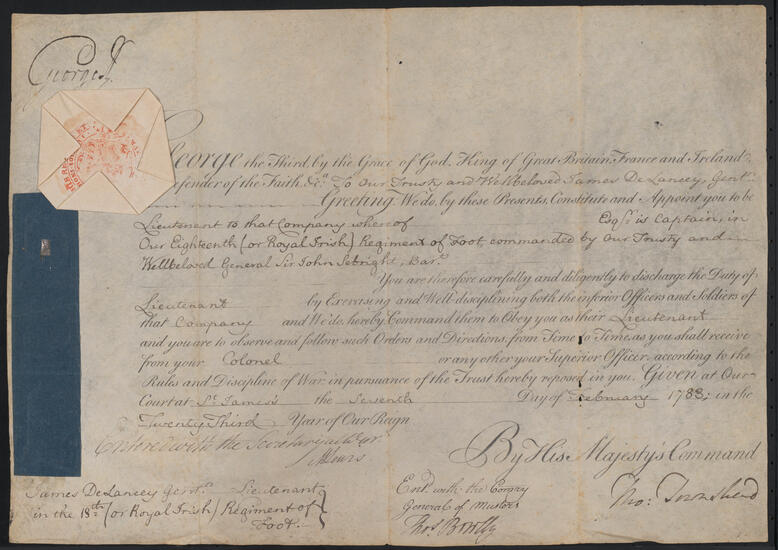 George R
George the Third by the Grace of God, King of Great Britain France and Ireland,
Defender of the Faith, &c.a To Our Trusty and Wellbeloved James De Lancey, Gent.n
Greeting. We do, by these Presents, Constitute and Appoint you to be
Lieutenant to that Company whereof Esq.r is Captain, in
Our Eighteenth (or Royal Irish) Regiment of Foot, commanded by Our Trusty and
Wellbeloved General Sir John Sebright, Bar.t
You are therefore carefully and diligently to discharge the Duty of
Lieutenant by Exercising and Well-disciplining both the inferior Officers and Soldiers of
that Company and We do hereby Command them to Obey you as their Lieutenant
and you are to observe and follow such Orders and Directions, from Time to Time, as you shall receive
from your Colonel or any other your Superior Officer, according to the
Rules and Discipline of War in pursuance of the Trust hereby reposed in you. Given at Our
Court at St. James's the Seventh Day of February 1783, in the
Twenty Third Year of Our Reign
Entered with the Secretary at War
MLewis
By His Majesty's Command
Tho: Townshend
James De Lancey Gent.n Lieutenant
in the 18th (or Royal Irish) Regiment of
Foot
Ent.d with the Comsary
General of Musters
Tho.s